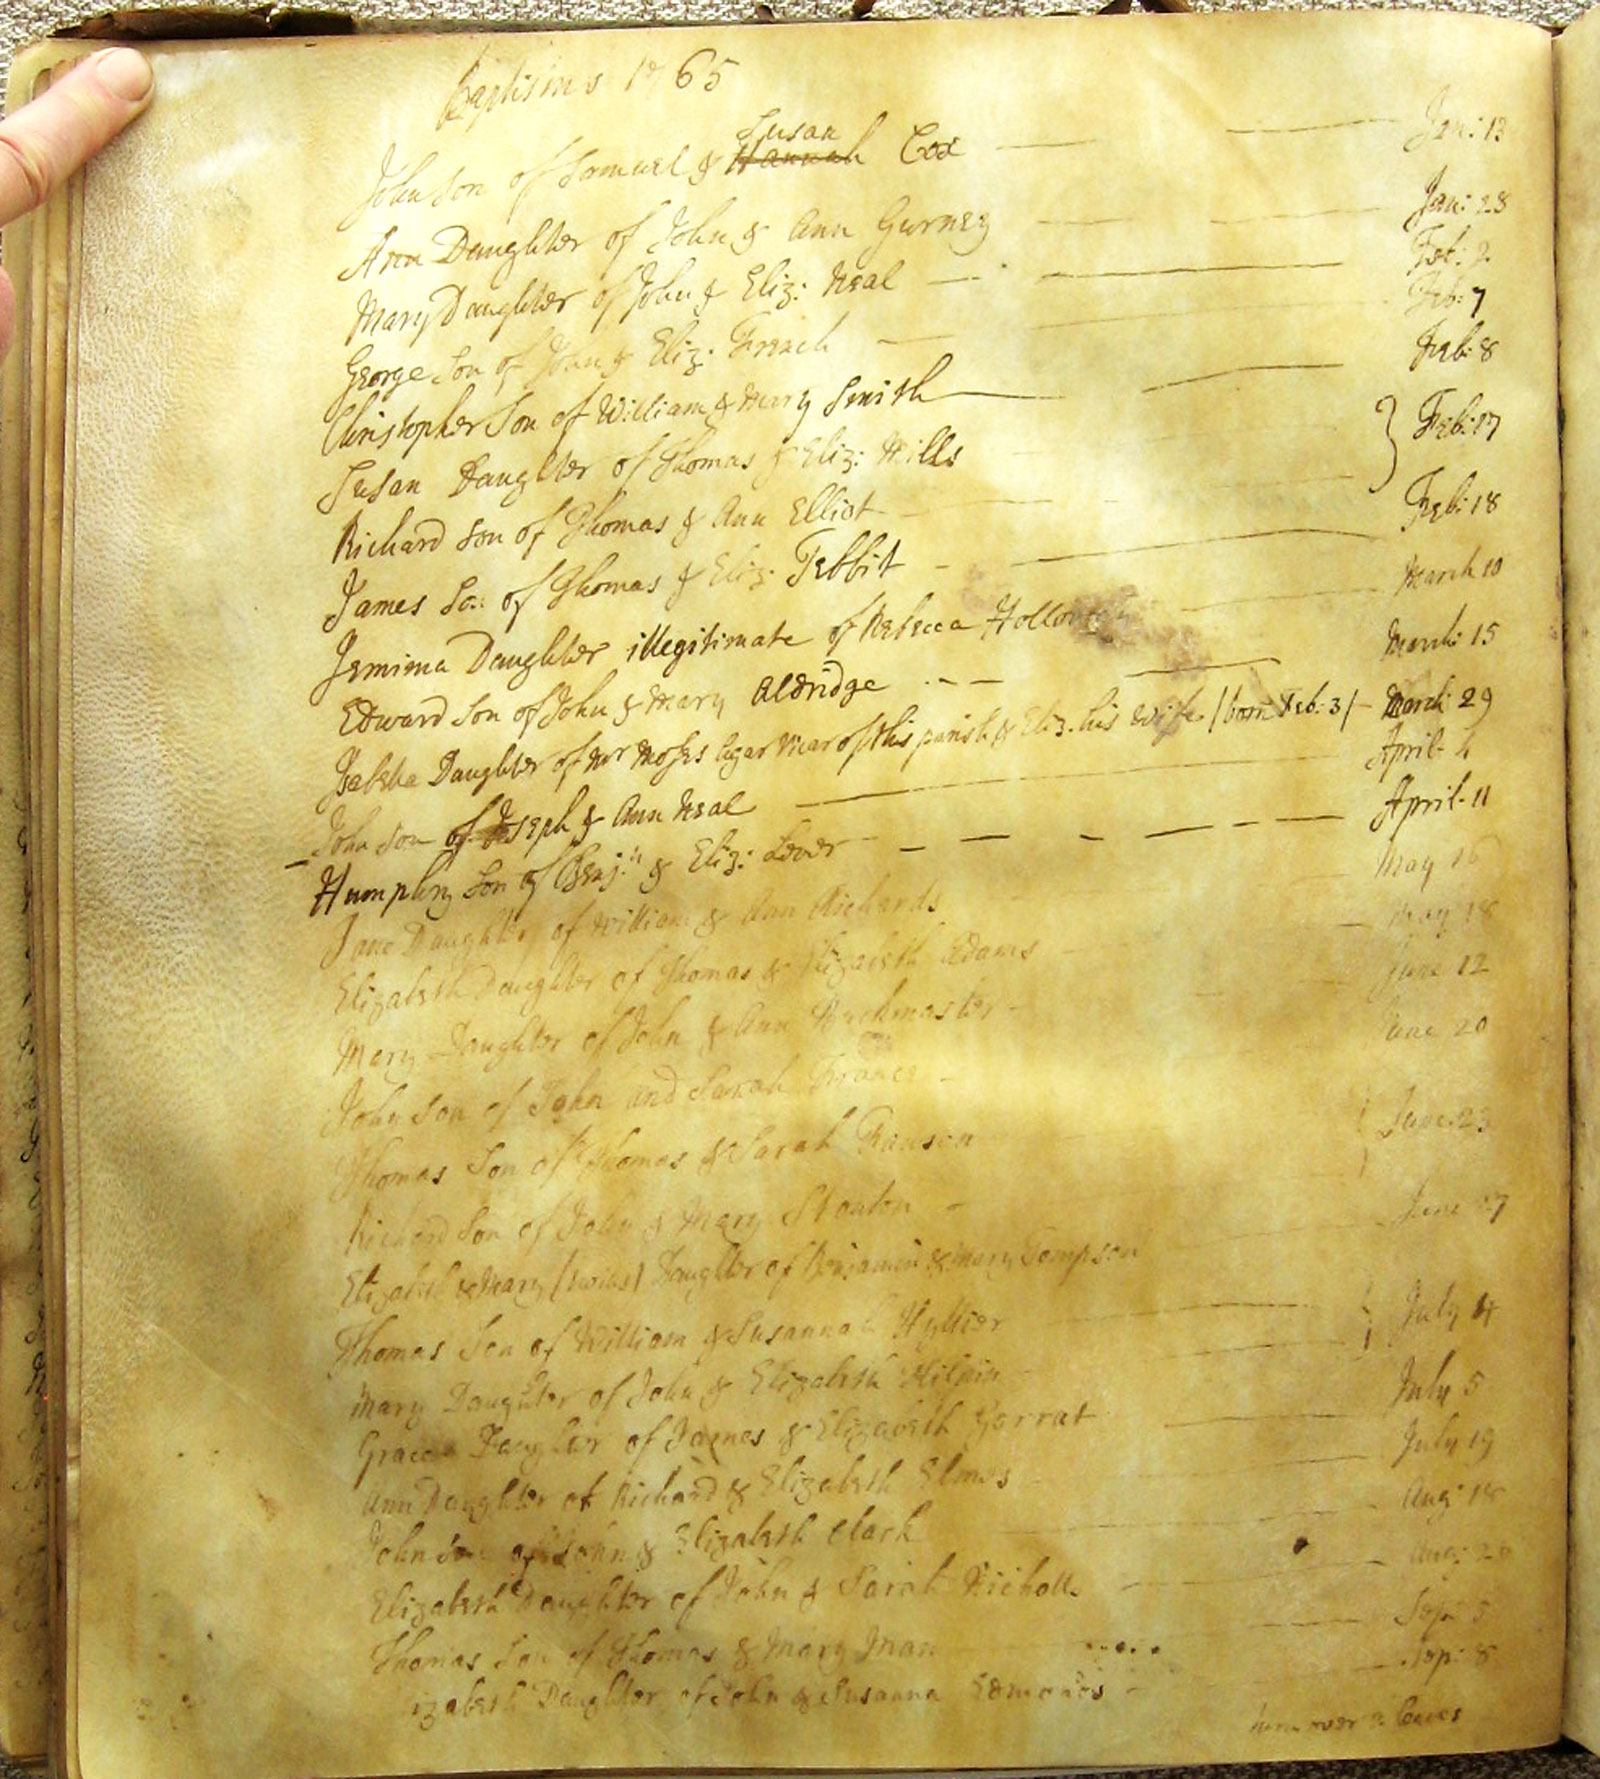 Baptisms 1765
John Son of Samuel & Susan Hannah Cox Jan: 13
Ann Daughter of John & Ann Gurney Jan: 28
Mary Daughter of John & Eliz: Neal Feb: 2
George Son of John & Eliz: French Feb: 7
Christopher Son of William & Mary Smith Feb: 8
Susan Daughter of Thomas & Eliz: Mills
Richard Son of Thomas & Ann Elliot Feb: 17
James Son of Thomas & Eliz: Tebbit Feb: 18
Jemima Daughter illegitimate of Rebecca March 10
Edward Son of John & Mary Aldridge March 15
Daughter of Mr Moses Agar Vicar of this parish & Eliz. his Wife /born Feb: 3/ March 29
John Son of Joseph & Ann Neal April
Humphry Son of Benj:n & Eliz: April 11
Jane Daughter of William & Ann Richards May 16
Elizabeth Daughter of Thomas & Elizabeth Adams May 18
Mary Daughter of John & Ann Buckmaster June 12
John Son of John and Sarah June 20
Thomas Son of Thomas & Sarah
Richard Son of John & Mary Stanton June 23
Elizabeth & Mary (twins) Daughter of Benjamin & Mary Tompson June
Thomas Son of William & Susannah Hyllier
Mary Daughter of John & Elizabeth July 4
Grace Daughter of James & Elizabeth Garrat July 5
Ann Daughter of Richard & Elizabeth Elmes July 19
John Son of John & Elizabeth Clark Aug: 18
Elizabeth Daughter of John & Sarah Nicholls Aug:
Thomas Son of Thomas & Mary Sep: 5
Daughter of John & Susanna Edmonds Sep: 8
turn over 2 leaves